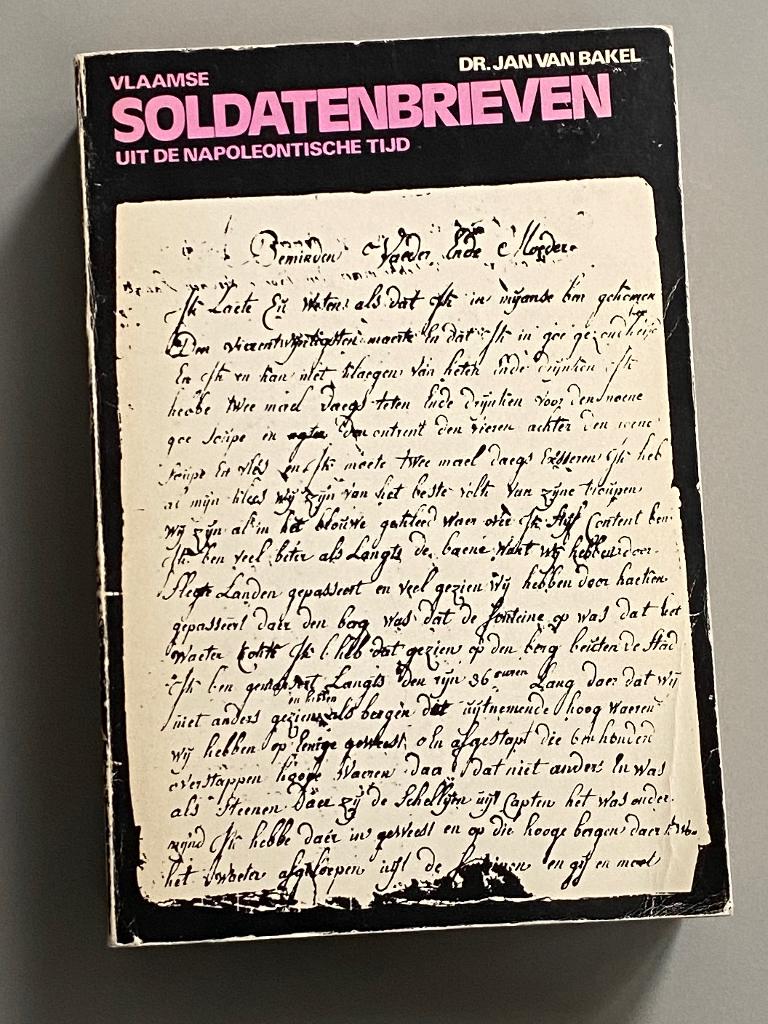 DR. JAN VAN BAKEL
VLAAMSE
SOLDATENBRIEVEN
UIT DE NAPOLEONTISCHE TIJD
Beminden Vaeder Ende Moeder
Ik Laete Eu Weten als dat Ik in
Den vierentwijntigsten maerte En dat Ik in goe gezondheijt
En Ik en kan niet klaegen van Ende drijnken Ik
hebbe twee mael daegs teten Ende drijnken voor den noene
goe soupe en Den ontrent den vieren achter den noene
soupe En vlees en Ik moete twee mael daegs Exsseren Ik heb
al mijn klees wij zijn van het beste volk van zijne troupen
Wij zijn al in het blouwe gekleed Waer over Ik stijf Content ben
Ik ben veel beter als Langts de baene Want wij hebben door
slegte Landen gepasseert en veel gezien Wij hebben door
gepasseert daer den berg was dat de fonteine op was dat het
Waeter Ik heb dat gezien op den berg de stad
Ik ben Langts den rijn 36 euren Lang daer dat wij
niet anders gezien als bergen uijtnemende hoog Waeren
en
wij hebben op geweest afgestapt die honderd
overstappen hooge Waeren daer dat niet anders En was
als steenen daer zij de Schellijen uijt Capten het was onder
mijnd Ik hebbe daer in geweest en op die hooge bergen daer
het Waeter afgeloepen uijt de en gij en moet